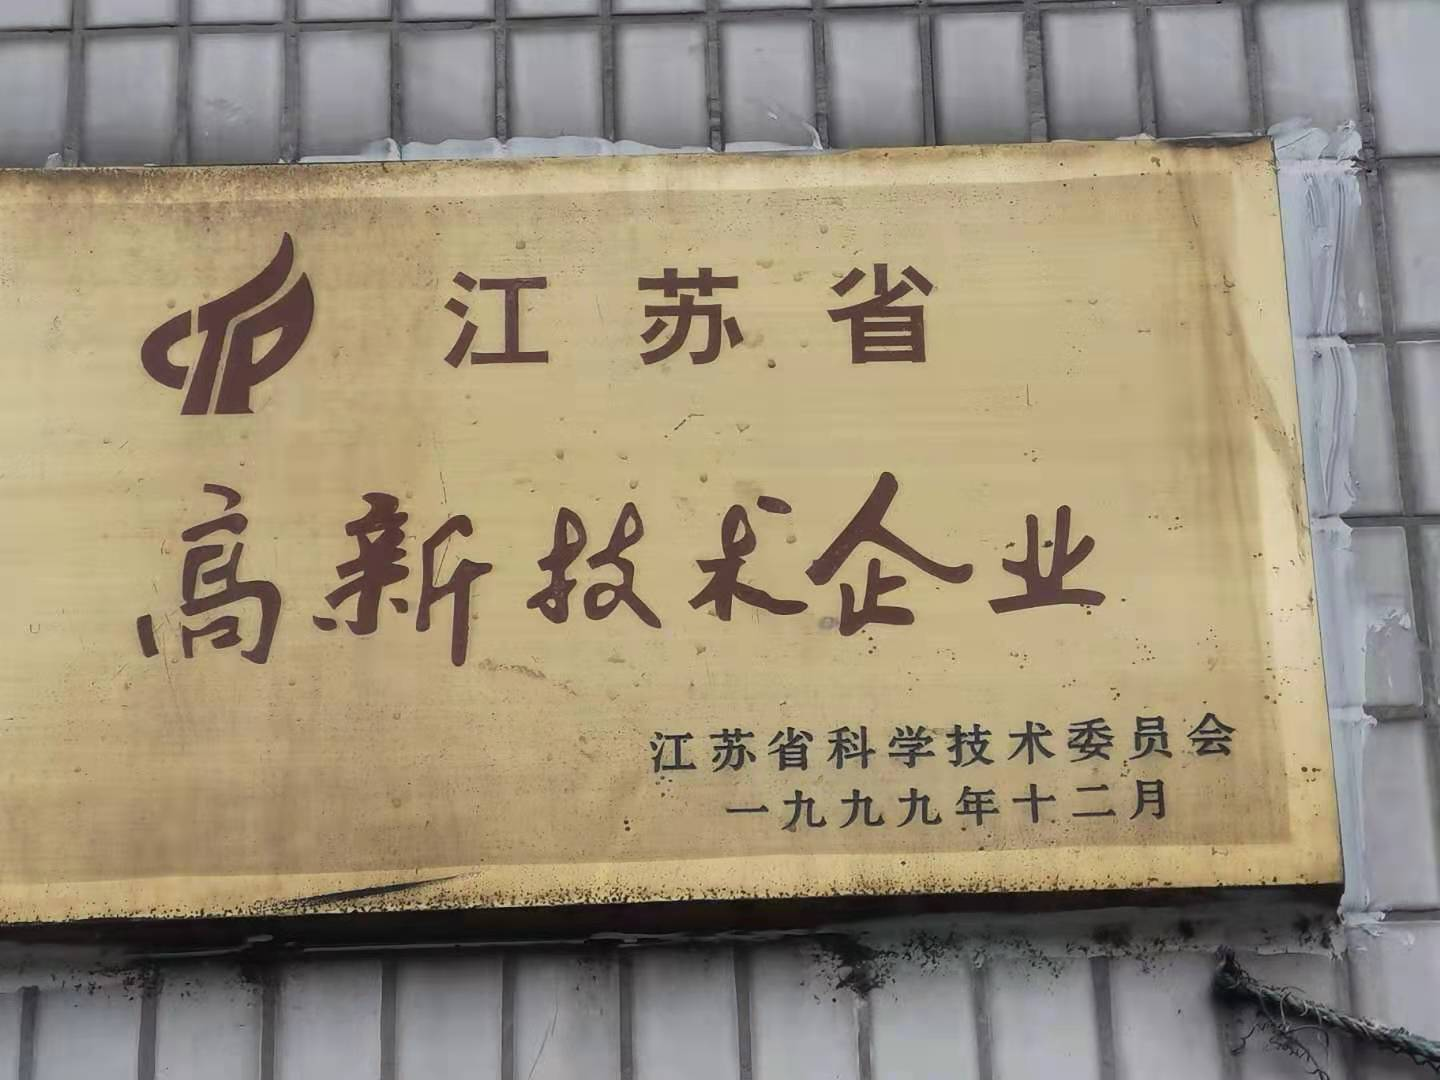 江苏省
高新技术企业
江苏省科学技术委员会
一九九九年十二月